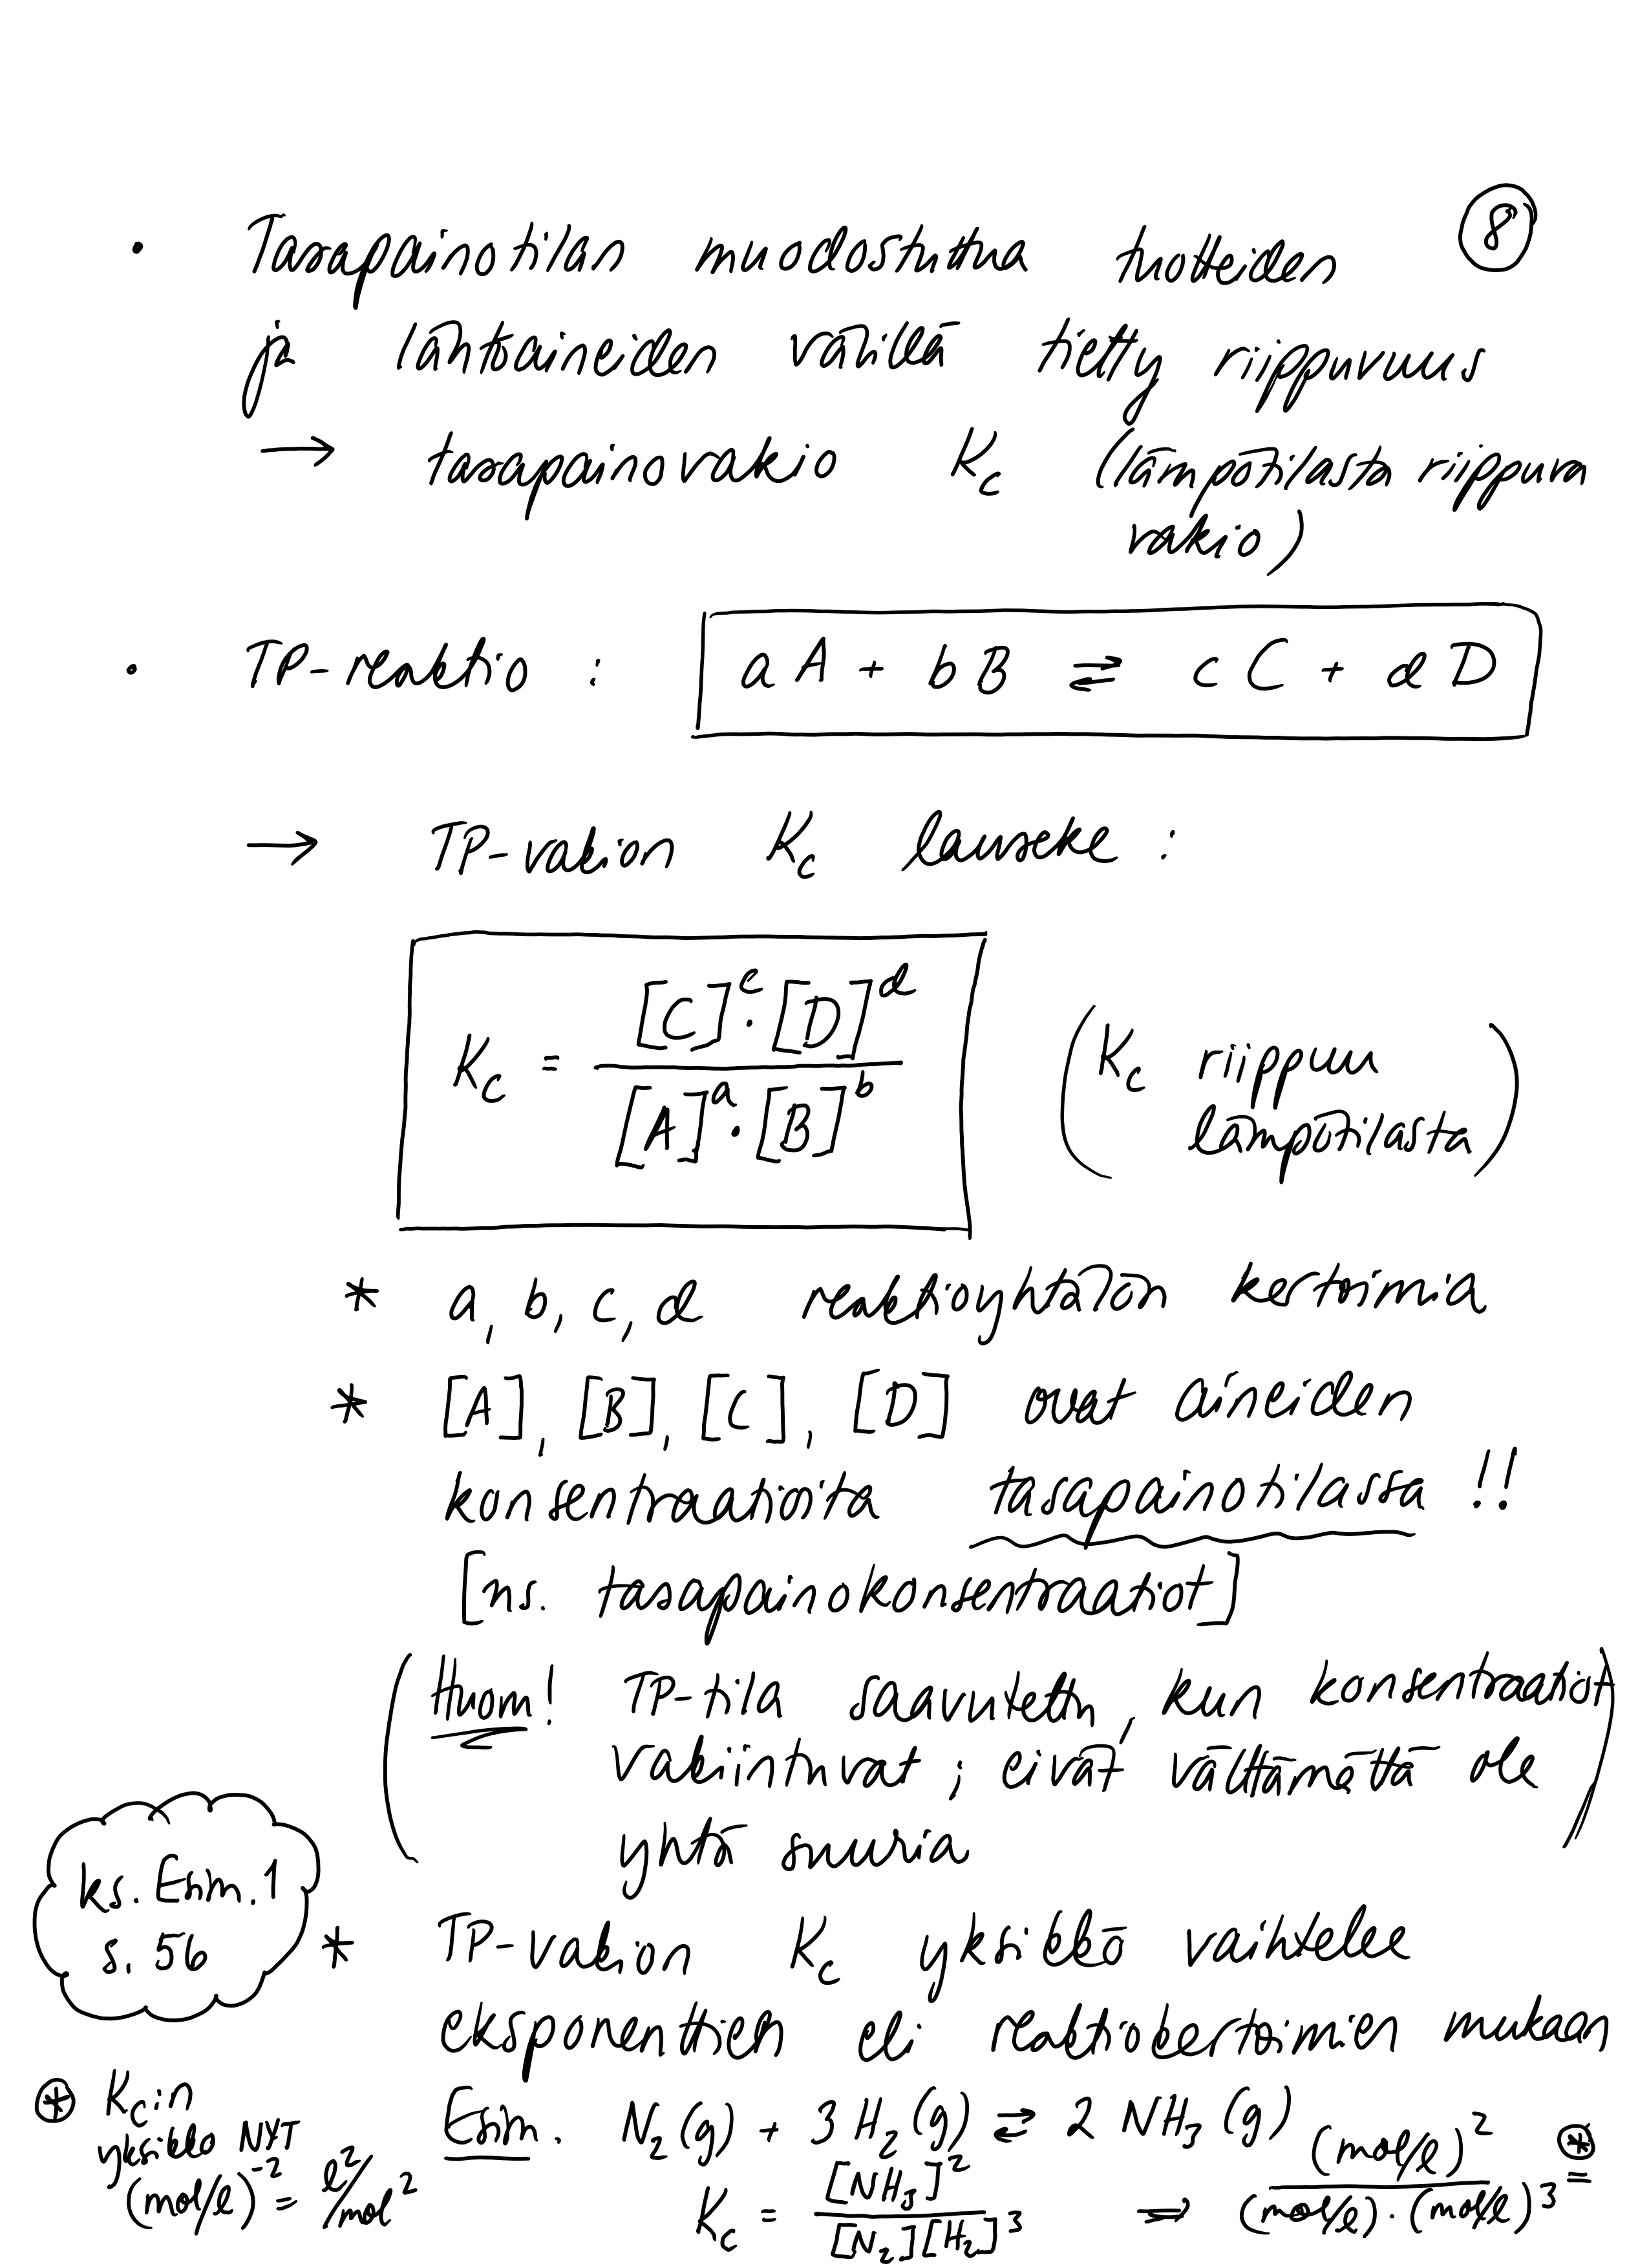 8
• Tasapainotilan muodostuttua tuotteiden
ja lähtöaineiden välillä tietty riippuvuus
→ tasapainovakio Kc (lämpötilasta riippuva
vakio)
• TP-reaktio : aA + bB ⇌ cC + dD
→ TP-vakion Kc lauseke :
Kc = [C]^c · [D]^d / [A]^a · [B]^b
(Kc riippuu
lämpötilasta)
* a, b, c, d reaktioyhtälön kertoimia
* [A], [B], [C], [D] ovat aineiden
konsentraatioita tasapainotilassa !!
[ns. tasapainokonsentraatiot]
(Huom! TP-tila saavutettu, kun konsentraatiot
vakiintuvat ; eivät välttämättä ole
yhtä suuria)
ks. Esim. 1
s. 56
* TP-vakion Kc yksikkö vaihtelee
eksponenttien eli reaktiokertoimien mukaan
Esim. N₂(g) + 3H₂(g) ⇌ 2NH₃(g)
Kc = [NH₃]² / [N₂][H₂]³ ⇒ (mol/l)² / (mol/l) · (mol/l)³ ⊛=
⊛ Kc:n
yksikkö NYT
(mol/l)⁻² = l²/mol²